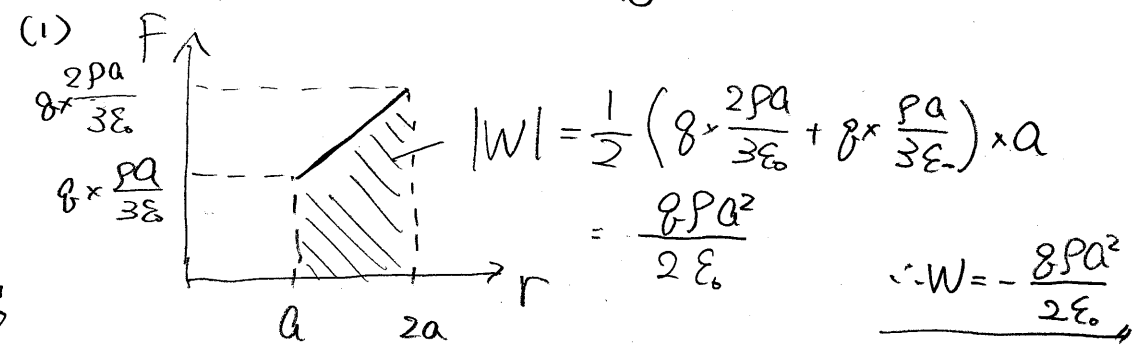 (1) F
q×2ρa/3ε₀
q×ρa/3ε₀
a 2a r
|W| = 1/2 (q×2ρa/3ε₀ + q×ρa/3ε₀)×a
= qρa²/2ε₀
∴W = - qρa²/2ε₀